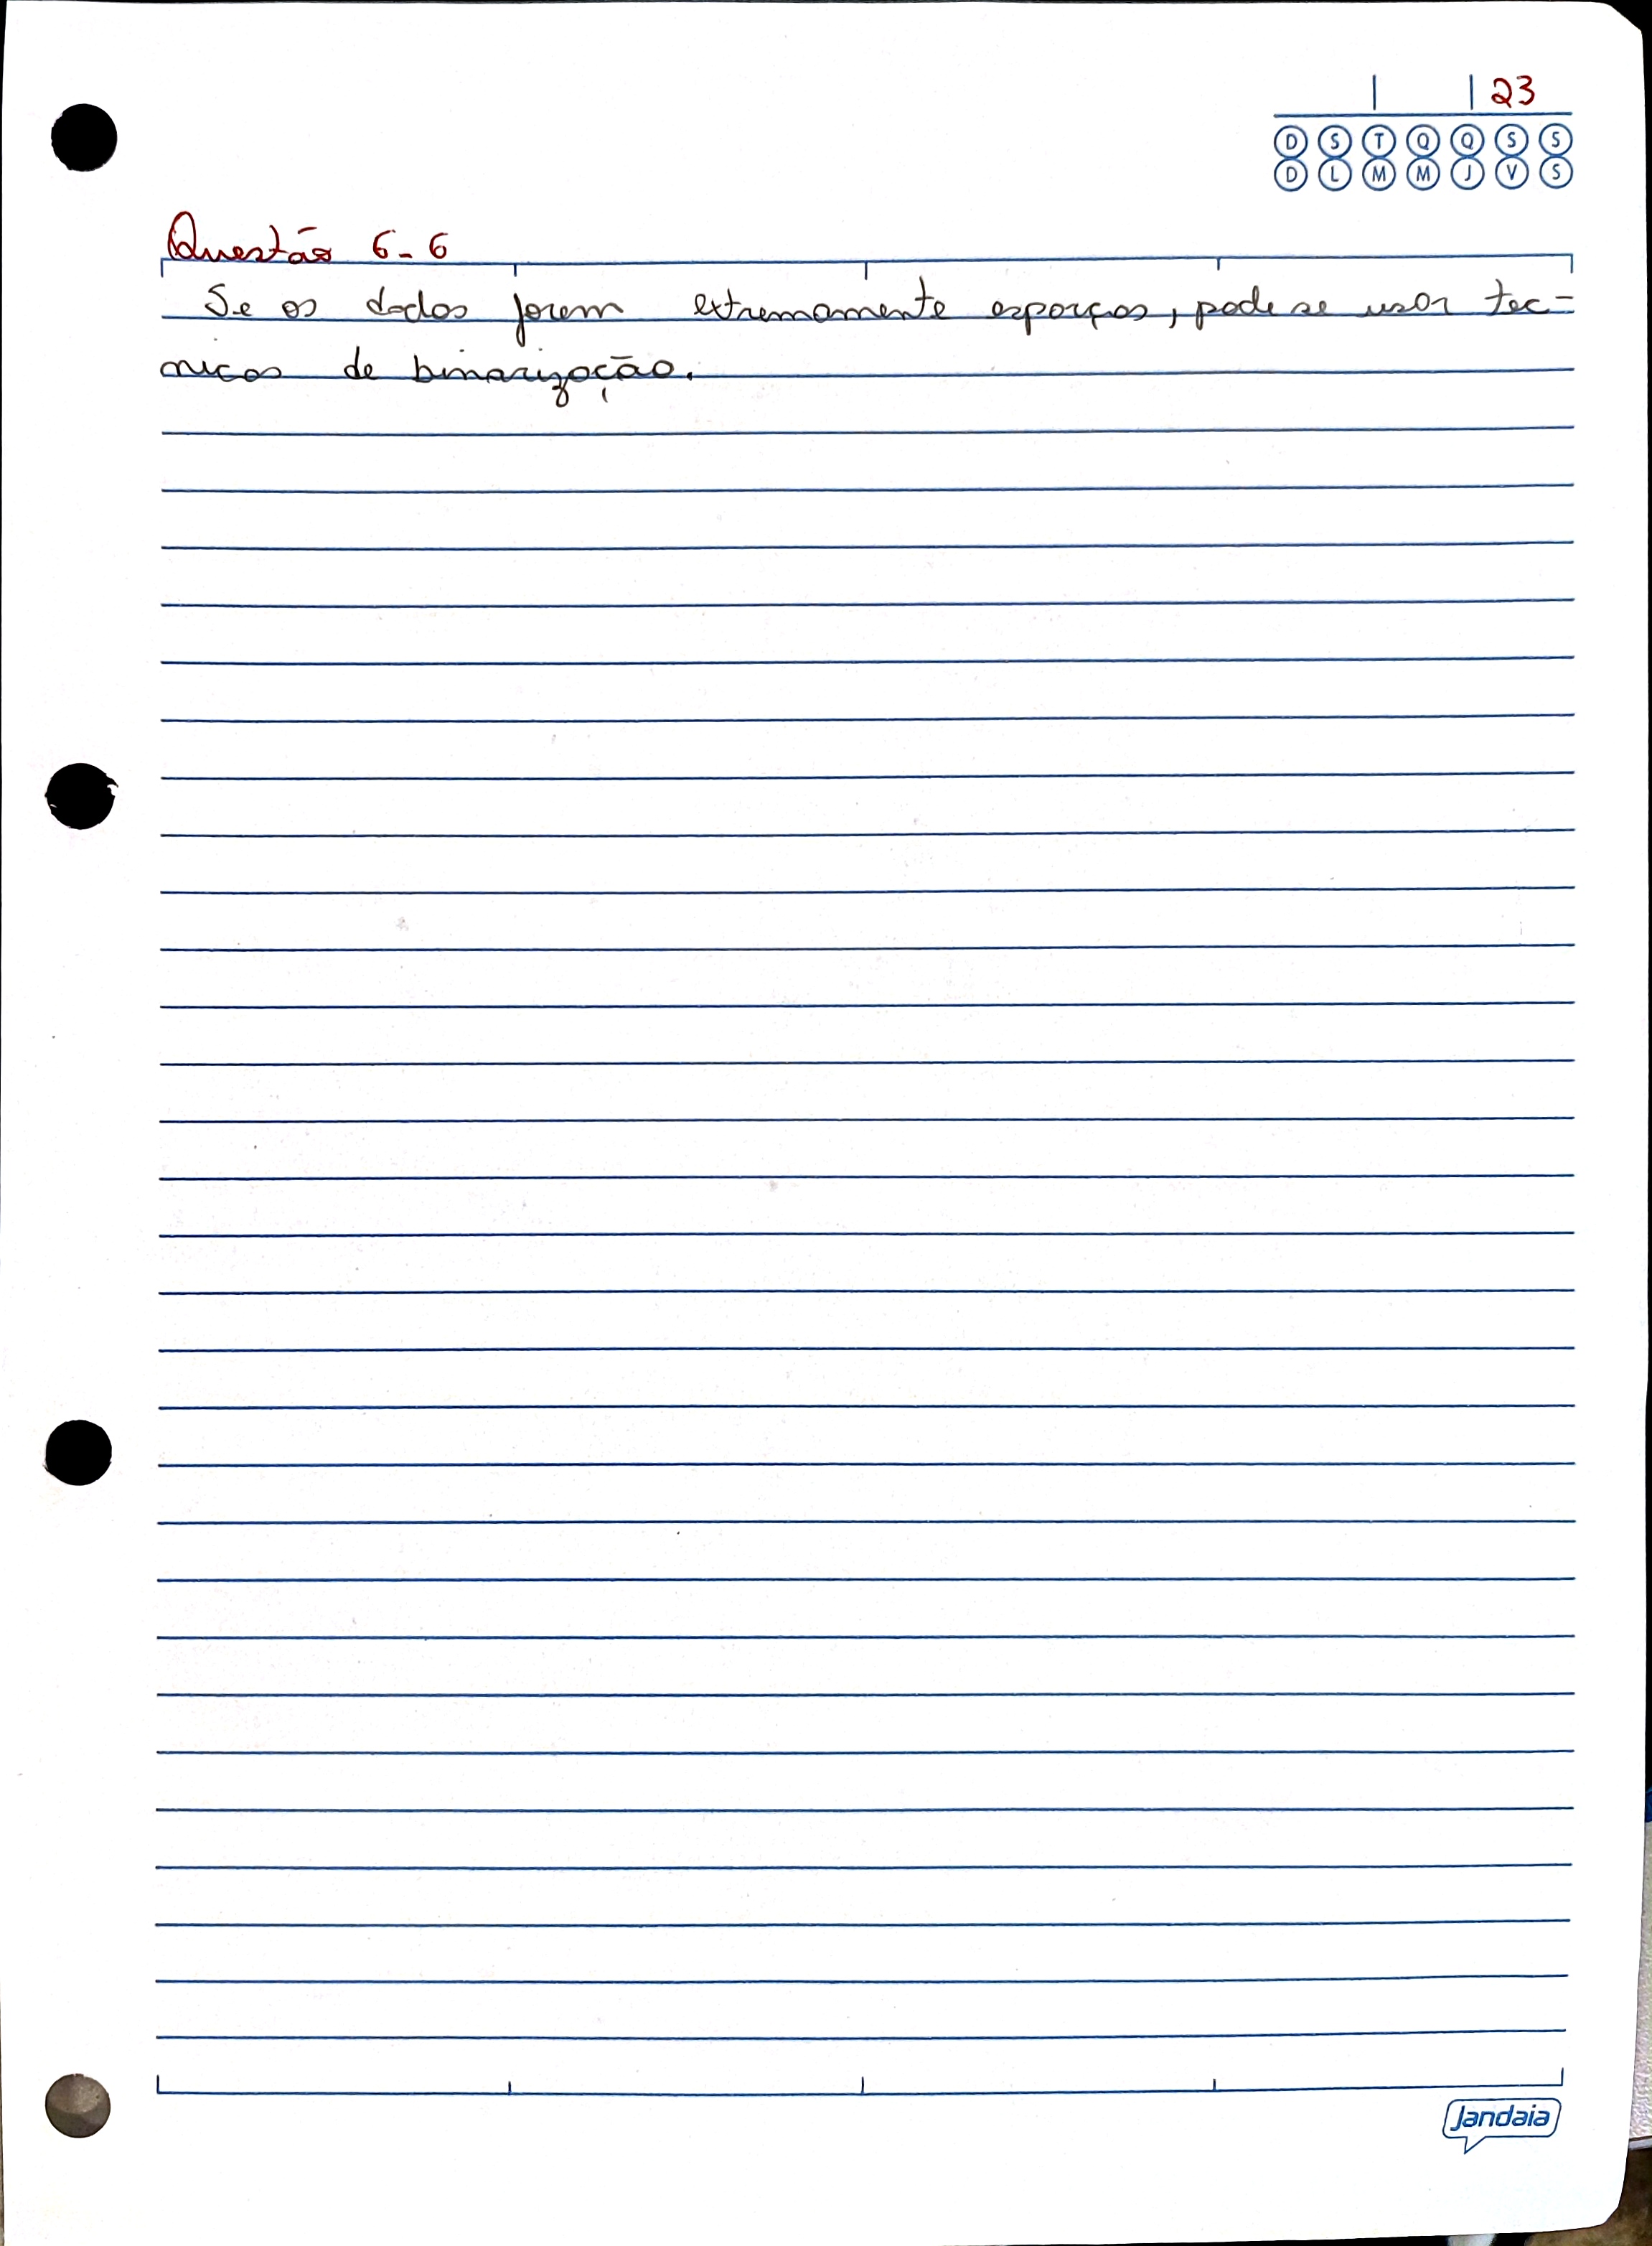 23
D S T Q Q S S
D L M M J V S
Questão 6-6
Se os dados forem extremamente esparços, pode se usar tec-
nicas de binarização.
Jandaia